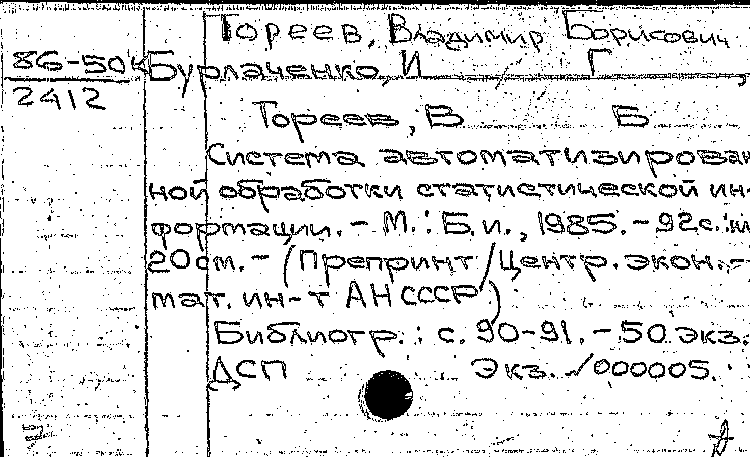 Тореев, Владимир Борисович
86-50к Бурлаченко, И Г ,
2412
Тореев, В Б
Система автоматизирован
ной обработки статистической ин-
формации. - М. : Б.и., 1985. - 92с.: ил
20см. - (Препринт/Центр. экон.-
мат. ин-т АН СССР)
Библиогр.: с. 90-91. - 50 экз.
ДСП Экз. √000005.